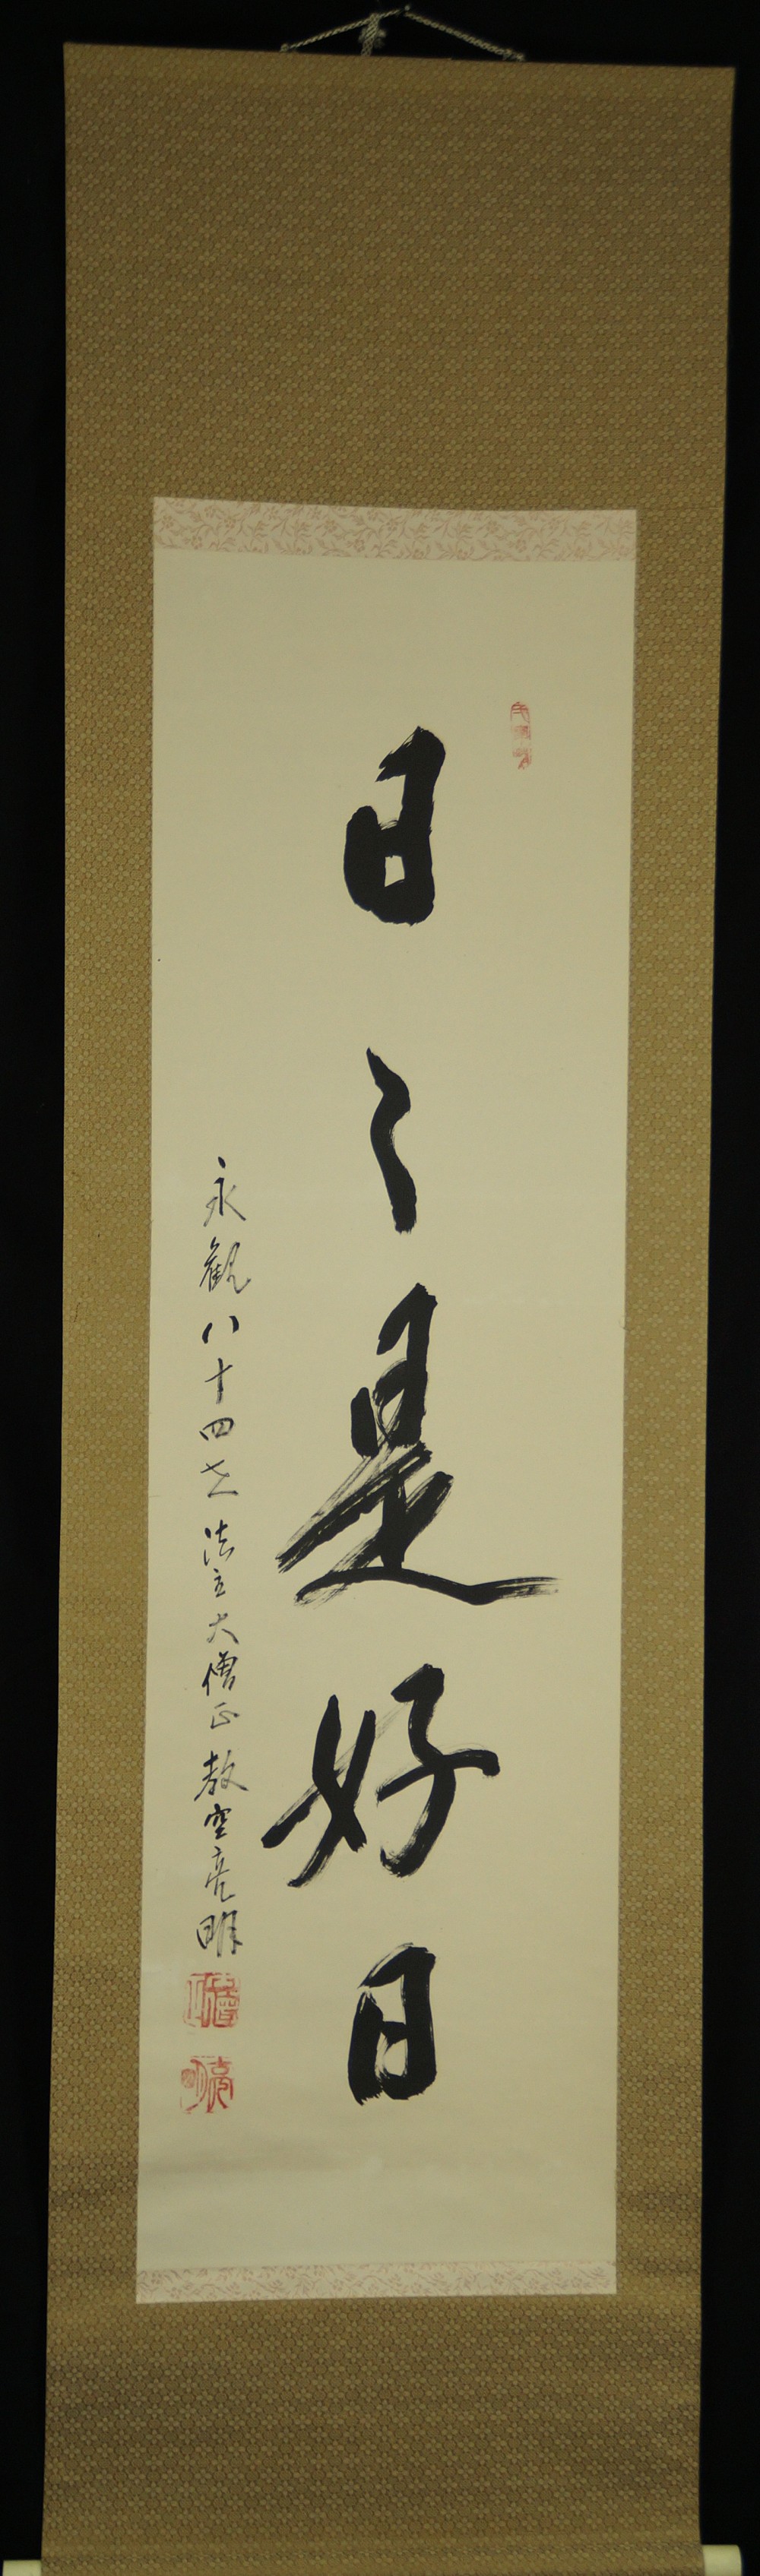 日々是好日
永観八十四世法主大僧正教空亮明